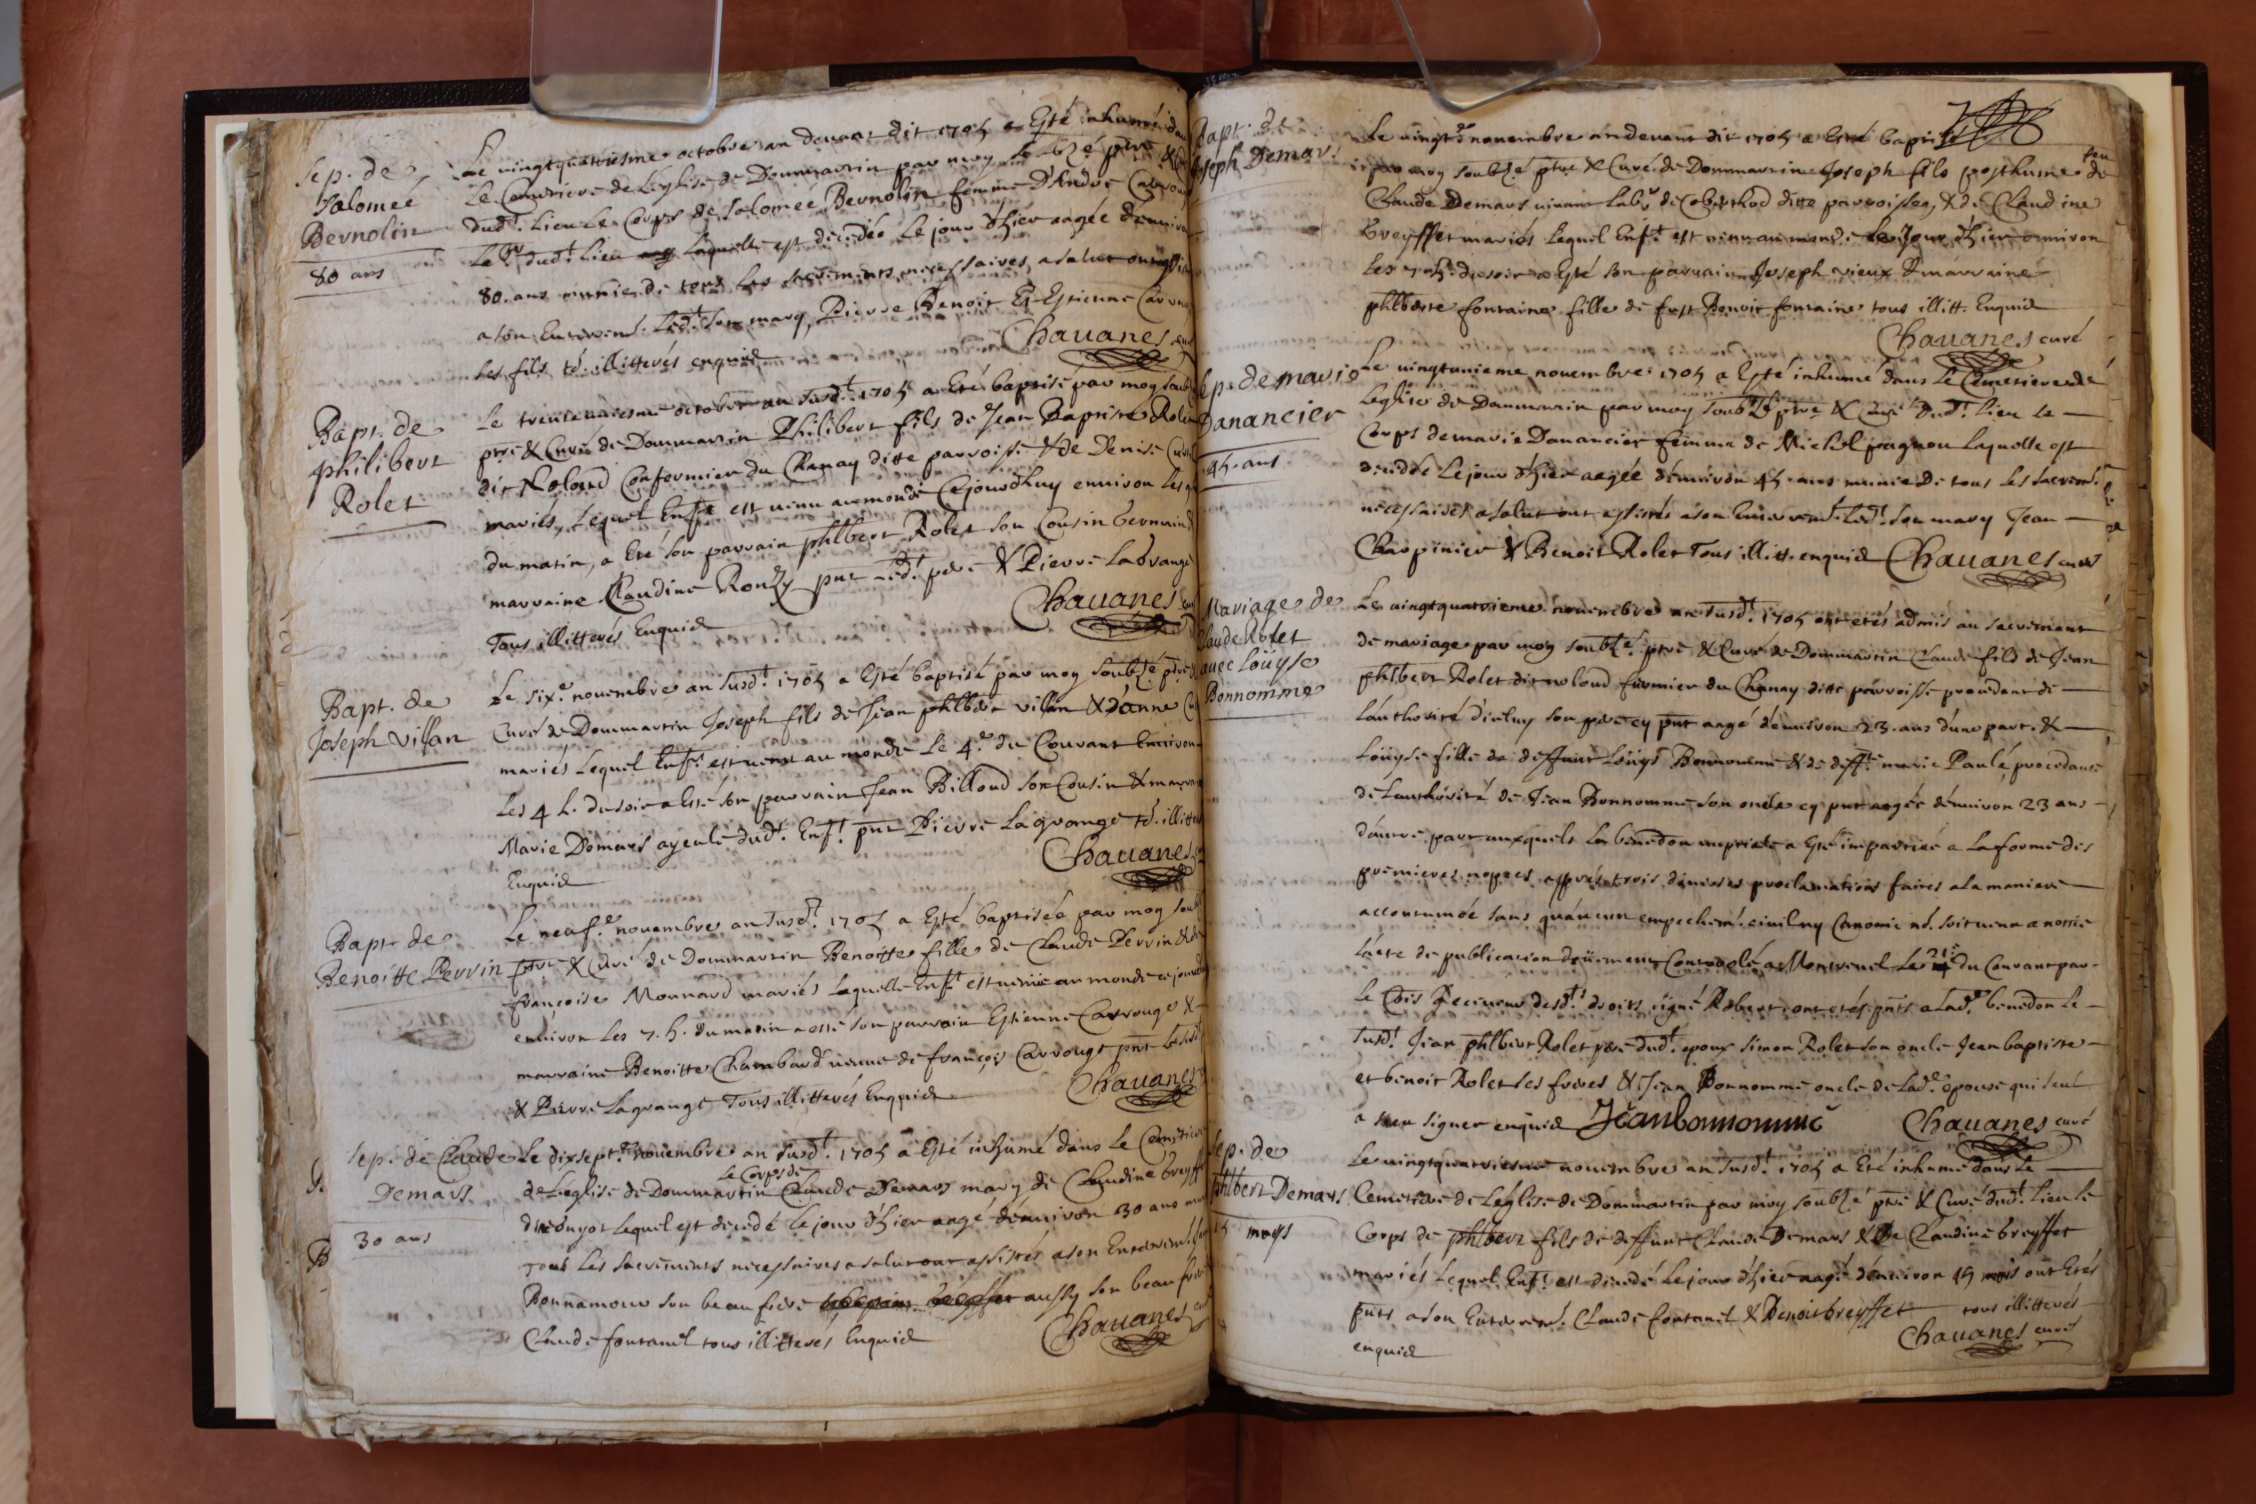 Sep. de
Salomeé
Bernolin
80 ans
Le vingtquatriesme octobre an devant dit 1705 a Esté inhumé dans
Le Cemetiere de Leglise de Dommartin par moy soubzé ptre & Curé
dud.t Lieu Le Corps de Salomeé Bernolin femme D'André Carrouge
dud.t Lieu Laquelle est décédée Le jour d'hier aagée d'environ
80. ans munie de tous Les sacrements necessaires a salut ont assisté
a son Enterrem.t Led.t son mary, Pierre Benoit Et Estienne Carrouge
ses fils td. illitterés enquid
Chauanes curé
Bapt. de
philibert
Rolet
Le trentenaiesme octobre an susd.t 1705 a Eté baptisé par moy soubzé
ptre & Curé de Dommartin Philibert fils de Jean Baptiste Rolet
dit Roloud Cofermier du Chanay ditte parroisse & de Denise
mariés, Lequel Enft est venu au monde Cejourdhuy environ Les
du matin, a Eté son parrain phlbert Rolet son Cousin Germain &
marraine Claudine Ronzy pnt Led.t pere & Pierre Lagrange
Tous illitterés Enquid
Chauanes curé
Bapt. de
Joseph villan
Le six.e novembre an susd.t 1705 a Esté baptisé par moy soubzé ptre &
Curé de Dommartin Joseph fils de Jean phlbert villan & d'anne
mariés Lequel Enft. est venu au monde Le 4.e du Courant Environ
Les 4 h. du soir a Esté son parrain Jean Billoud son Cousin & marraine
Marie Demars ayeule dud.t Enf.t pnt Pierre Lagrange td. illitterés
Enquid
Chauanes
Bapt. de
Benoitte Perrin
Le neuf.e novembre an susd.t 1705 a Esté baptisée par moy soubzé
ptre & Curé de Dommartin Benoitte fille de Claude Perrin & de
françoise Monnard mariés Laquelle Enft est venüe au monde cejourdhuy
environ Les 7. h. du matin a esté son parrain Estienne Carrouge &
marraine Benoitte Chambard veuve de françois Carrouge pnt Led.t
& Pierre Lagrange Tous illitterés Enquid
Chauanes
Sep. de Claude
Demars
30 ans
Le dixsept.e novembre an susd.t 1705 a Esté inhumé dans le Cemetiere
de Leglise de Dommartin Le Corps de Claude Demars mary de Claudine breyffet
Lequel est decedé le jour d'hier aagé d'environ 30 ans
Tous Les sacrements necessaires a salut ont assistés a son Enterrem.t
Bonnamour son beau frere aussy son beau frere
Claude fontanel tous illitterés Enquid
Chauanes curé
Bapt. de
Joseph Demars
Le vingt.e novembre an devant dit 1705 a Esté baptisé
par moy soubzé ptre & Curé de Dommartin Joseph fils posthume de feu
Claude Demars vivant Lab.r de Coberthod ditte parroisse, & de Claudine
Breyffet mariés Lequel Enf.t est venu au monde Le Jour d'hier environ
Les 7 h. du soir a Esté son parrain Joseph vieux & marraine
phlberte fontaine fille de feu Benoit fontaine tous illitt. Enquid
Chauanes curé
Sep. de marie
Danancier
45. ans
Le vingtunieme novembre 1705 a Esté inhumé dans Le Cemetiere de
Leglise de Dommartin par moy soubzé ptre & Curé dud.t Lieu Le
Corps de marie Danancier femme de Michel pagneu Laquelle est
decedée Le jour d'hier aagée d'environ 45 ans munie de tous Les sacrem.ts
necessaires a salut ont assistés a son Enterrem.t Led.t son mary Jean
Charpinier & Benoit Rolet Tous illitt. enquid Chauanes curé
Mariage de
Claude Rolet
avec Loüyse
Bonnomme
Le vingtquatrieme novembre an susd.t 1705 ont etés admis au sacrement
de mariage par moy soubzé. ptre & Curé de Dommartin Claude fils de Jean
phlbert Rolet dit roloud fermier du Chanay ditte parroisse procedant de
L'authorité d'icluy son pere cy pnt aagé d'environ 23. ans d'une part. &
Loüyse fille de deffunt Loüys Bonnomme & de deff.te marie Paulé, procedante
de Lauthorité de Jean Bonnomme son oncle cy pnt aagée d'environ 23 ans
d'autre part auxquels La benedon nuptiale a Esté impartiée a La forme des
premieres nopces après trois diverses proclamations faites a la maniere
accoutumée sans qu'aucun empechem.t civil ny Canonic nd. soit venu a notice
L'acte de publication düement Controolé a Montrevel Le 21e du Courant par
Le Cōis Receveur desd.ts droits signé Robert ont etés pnts a Lad.e benedon Le
susd.t Jean phlbert Rolet pere dud.t epoux Simon Rolet son oncle Jean baptiste
et benoit Rolet ses freres & Jean Bonnomme oncle de Lad.e epouse qui seul
a sceu signer enquid Jeanbonnommé Chauanes curé
Sep. de
phlbert Demars
15 moys
Le vingtquatriesme novembre an susd.t 1705 a Eté inhumé dans Le
Cemetiere de Leglise de Dommartin par moy soubzé ptre & Curé dud.t Lieu Le
Corps de phlbert fils de deffunt Claude Demars & De Claudine breyffet
mariés Lequel Enf.t est decedé Le jour d'hier aagé d'environ 15 mois ont Etés
pnts a son Enterrem.t Claude fontanel & Benoit breyffet tous illitterés
enquid
Chauanes curé